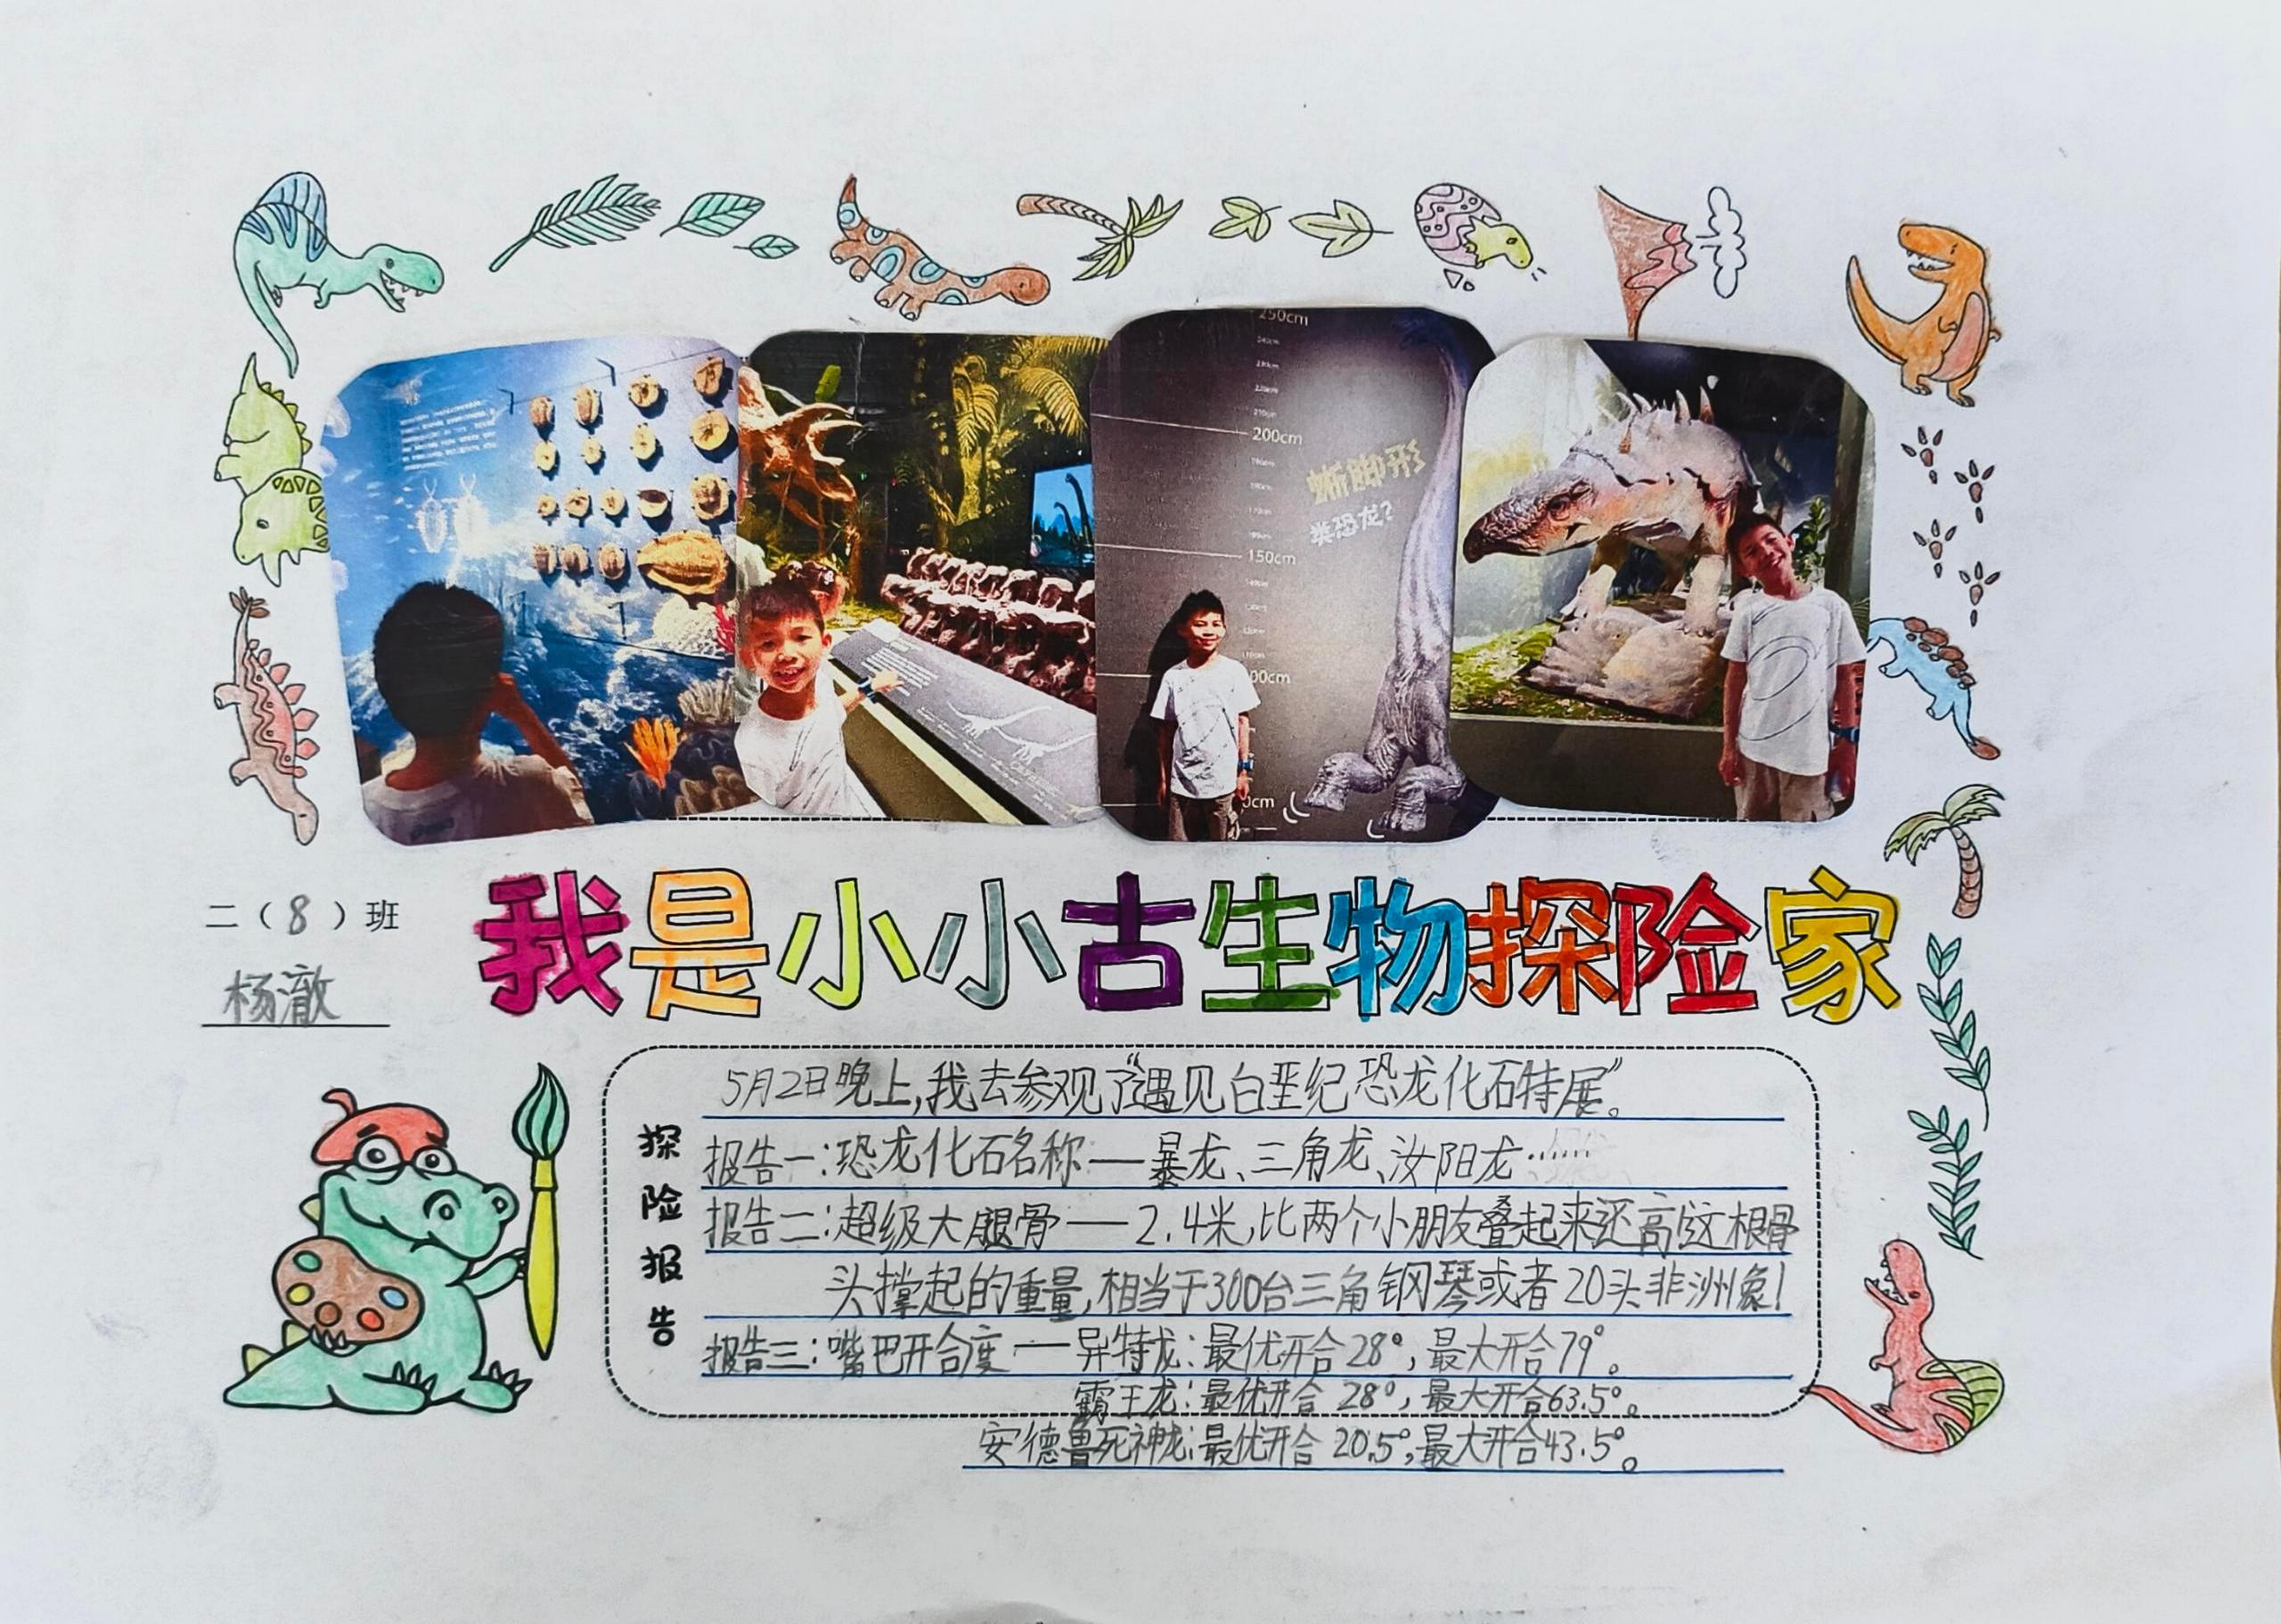 250cm
200cm
蜥脚形
类恐龙？
150cm
00cm
0cm
二（8）班
杨澈
我是小小古生物探险家
探险报告
5月2日晚上，我去参观了“遇见白垩纪恐龙化石特展”。
报告一：恐龙化石名称——暴龙、三角龙、汝阳龙……
报告二：超级大腿骨——2.4米，比两个小朋友叠起来还高！这根骨
头撑起的重量，相当于300台三角钢琴或者20头非洲象！
报告三：嘴巴开合度——异特龙：最优开合28°，最大开合79°。
霸王龙：最优开合28°，最大开合63.5°。
安德鲁死神龙：最优开合20.5°，最大开合43.5°。